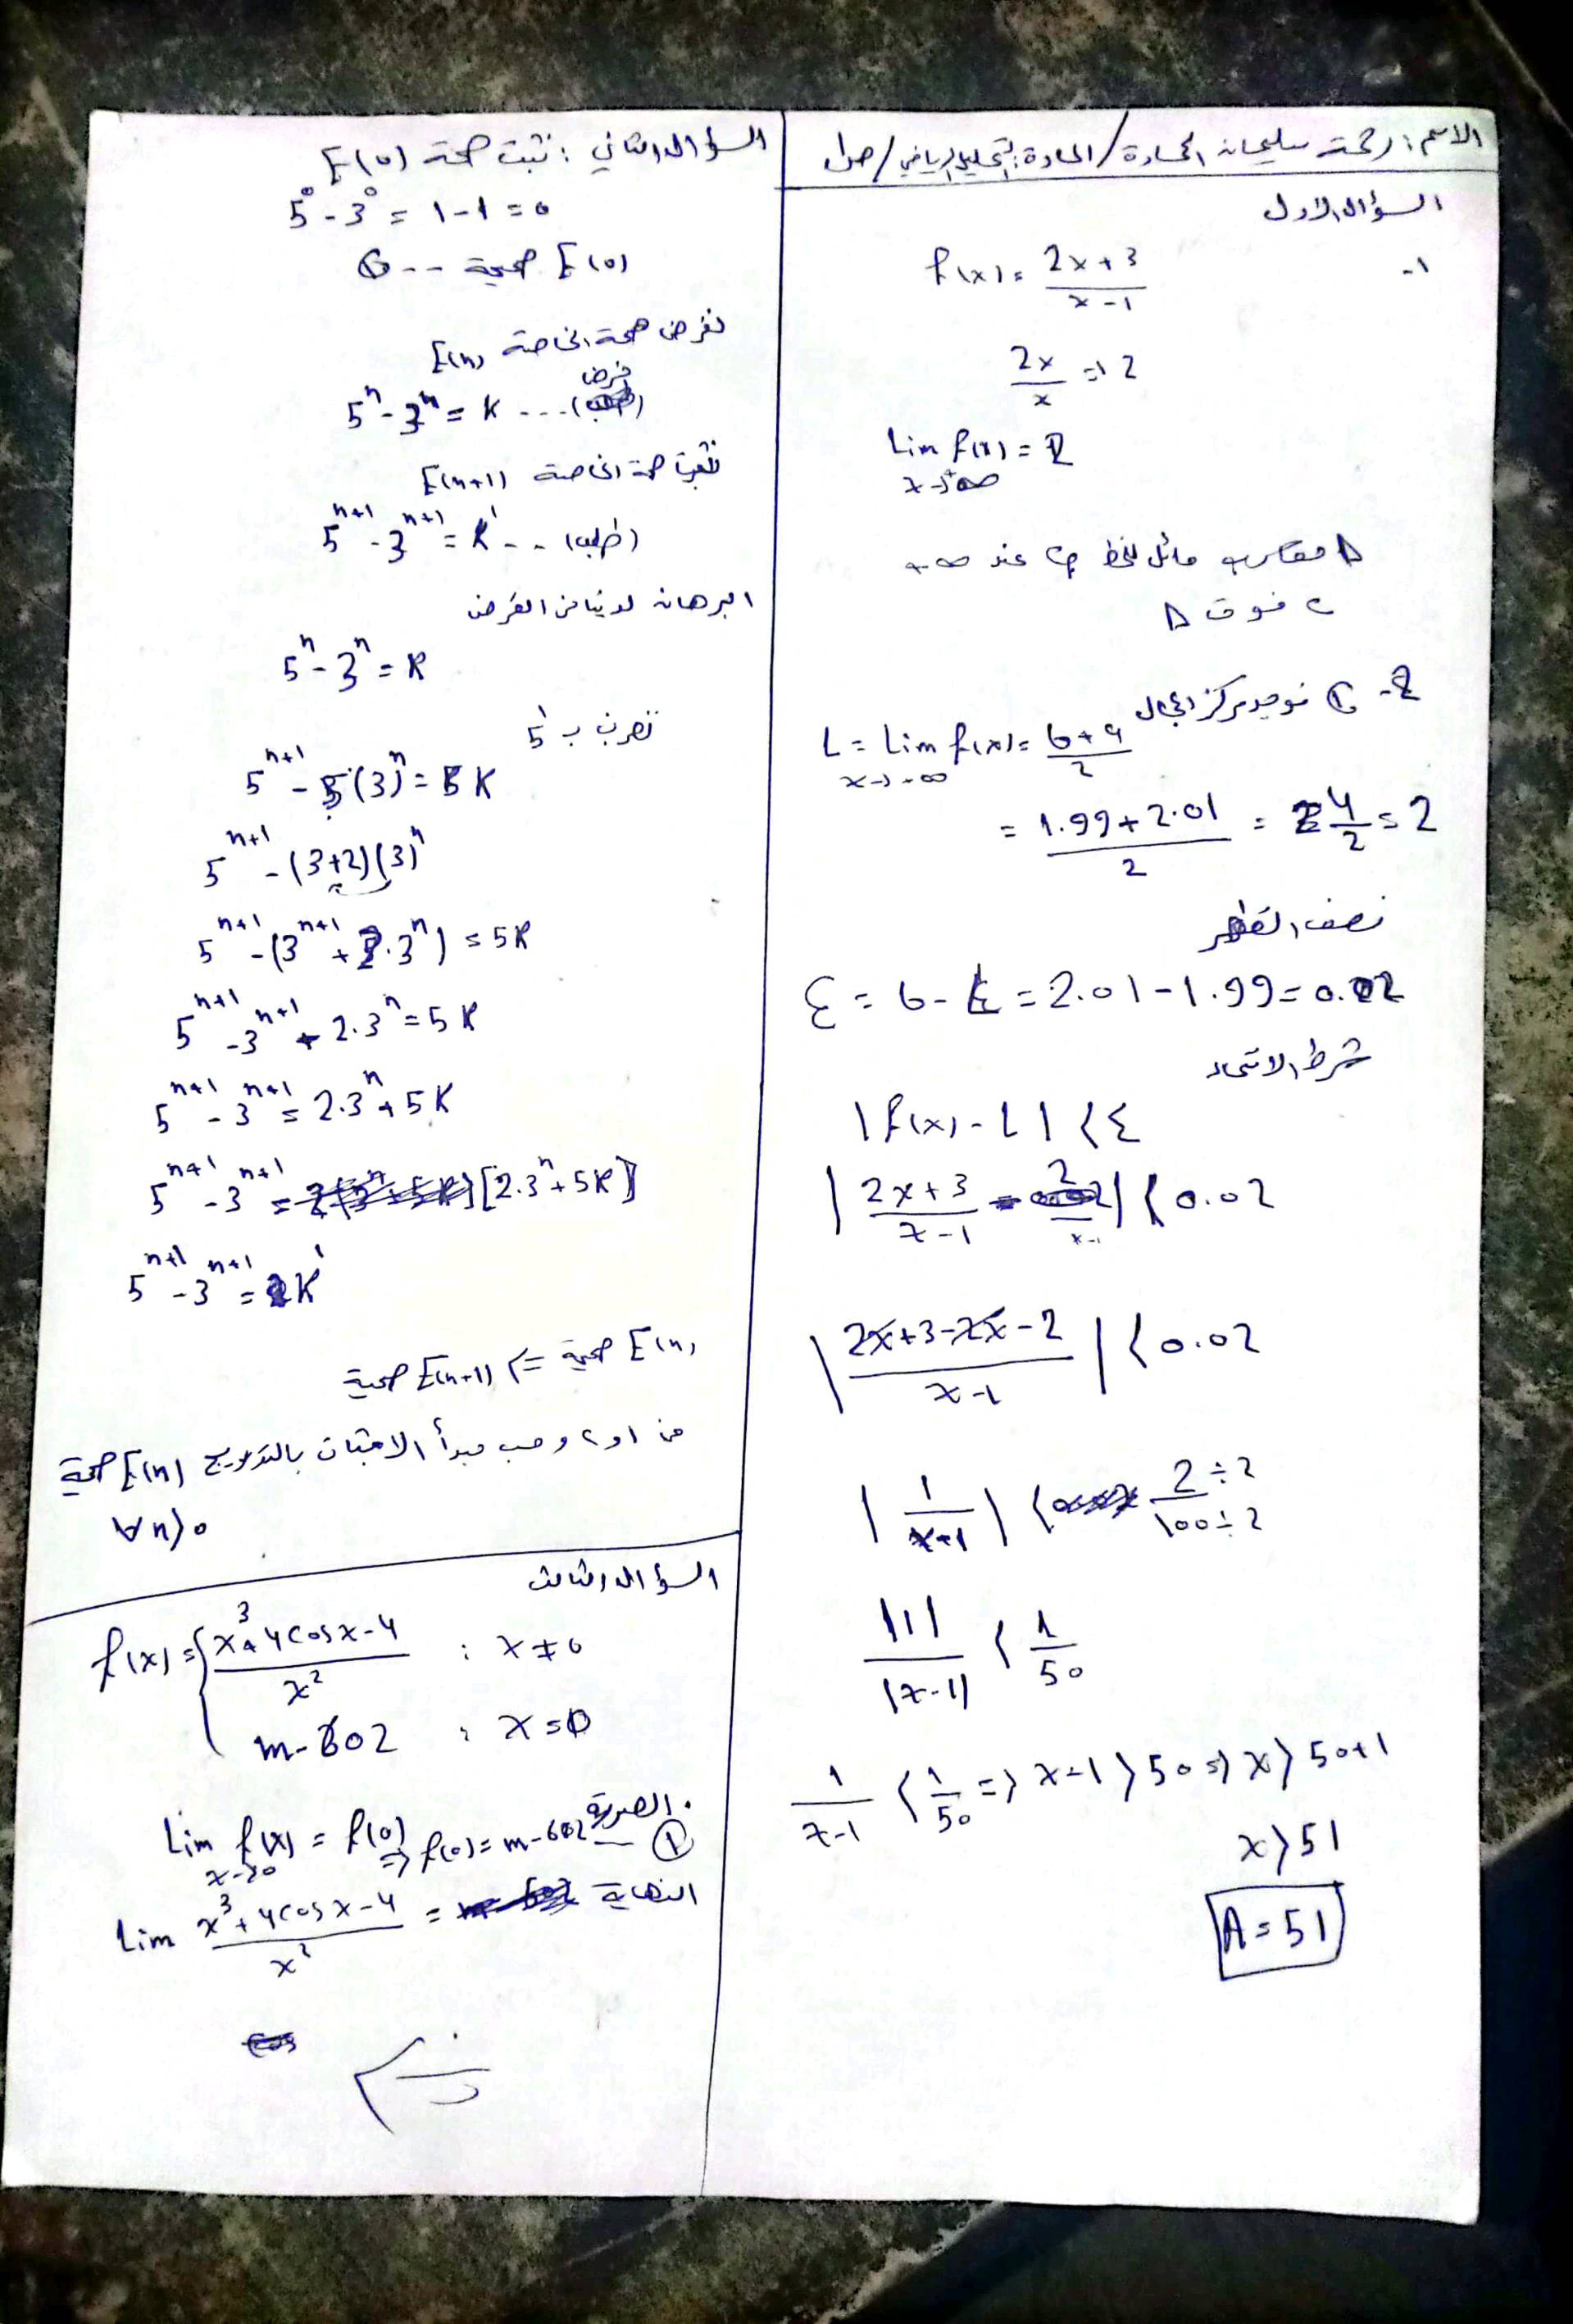 الاسم: رحمة سليمان المحادة / المادة: التحليل الرياضي /
السؤال الأول
1- f(x) = (2x+3)/(x-1)
2x/x = 2
Lim f(x) = 2
x→+∞
Δ مقارب مائل للخط C عند +∞
C فوق Δ
2- ① نوجد مركز المجال
L = Lim f(x) = (b+a)/2
x→-∞
= (1.99+2.01)/2 = 4/2 = 2
نصف القطر
ε = b-a = 2.01-1.99 = 0.02
شرط
|f(x)-L| < ε
|(2x+3)/(x-1) - 2| < 0.02
|(2x+3-2x-2)/(x-1)| < 0.02
|1/(x-1)| < 2÷2/100÷2
|1|/|x-1| < 1/50
1/(x-1) < 1/50 => x-1 > 50 => x > 50+1
x > 51
A = 51
السؤال الثاني: نثبت صحة E(0)
5⁰ - 3⁰ = 1-1 = 0
E(0) صحيحة --
نفرض صحة الخاصة E(n)
5ⁿ - 3ⁿ = K ... (فرض)
نثبت صحة الخاصة E(n+1)
5ⁿ⁺¹ - 3ⁿ⁺¹ = K' .. (طلب)
البرهان لدينا من الفرض
5ⁿ - 3ⁿ = K
نضرب ب 5
5ⁿ⁺¹ - 5(3)ⁿ = 5K
5ⁿ⁺¹ - (3+2)(3)ⁿ
5ⁿ⁺¹ - (3ⁿ⁺¹ + 2.3ⁿ) = 5K
5ⁿ⁺¹ - 3ⁿ⁺¹ + 2.3ⁿ = 5K
5ⁿ⁺¹ - 3ⁿ⁺¹ = 2.3ⁿ + 5K
5ⁿ⁺¹ - 3ⁿ⁺¹ = [2.3ⁿ + 5K]
5ⁿ⁺¹ - 3ⁿ⁺¹ = 2K'
E(n) صحيحة => E(n+1) صحيحة
من 1 و 2 وحسب مبدأ الاثبات بالتدريج E(n) صحيحة
∀n>0
السؤال الثالث
f(x) = { (x³+4cosx-4)/x² : x≠0
m-602 : x=0
Lim f(x) = f(0) => f(0) = m-602 ①
x→0
النهاية Lim (x³+4cosx-4)/x² =